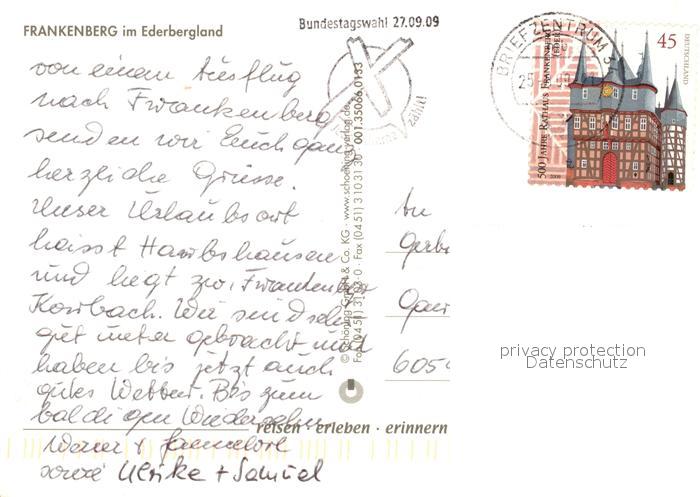 FRANKENBERG im Ederbergland
Bundestagswahl 27.09.09
zählt!
BRIEFZENTRUM 3
25
45
DEUTSCHLAND
500 JAHRE RATHAUS FRANKENBERG (EDER)
2009
von einem Ausflug
nach Frankenberg
senden wir Euch ganz
herzliche Grüsse.
Unser Urlaubsort
heisst Harbshausen
und liegt zw. Frankenberg
Korbach. Wir sind sehr
gut unter gebracht und
haben bis jetzt auch
gutes Wetter. Bis zum
baldigen Wiedersehn
sowie Ulrike + Samuel
© Schöning GmbH & Co. KG · www.schoening-verlag.de
Fax (0451) 3 10 31 30 001.35066.0133
An
605
reisen · erleben · erinnern
privacy protection
Datenschutz